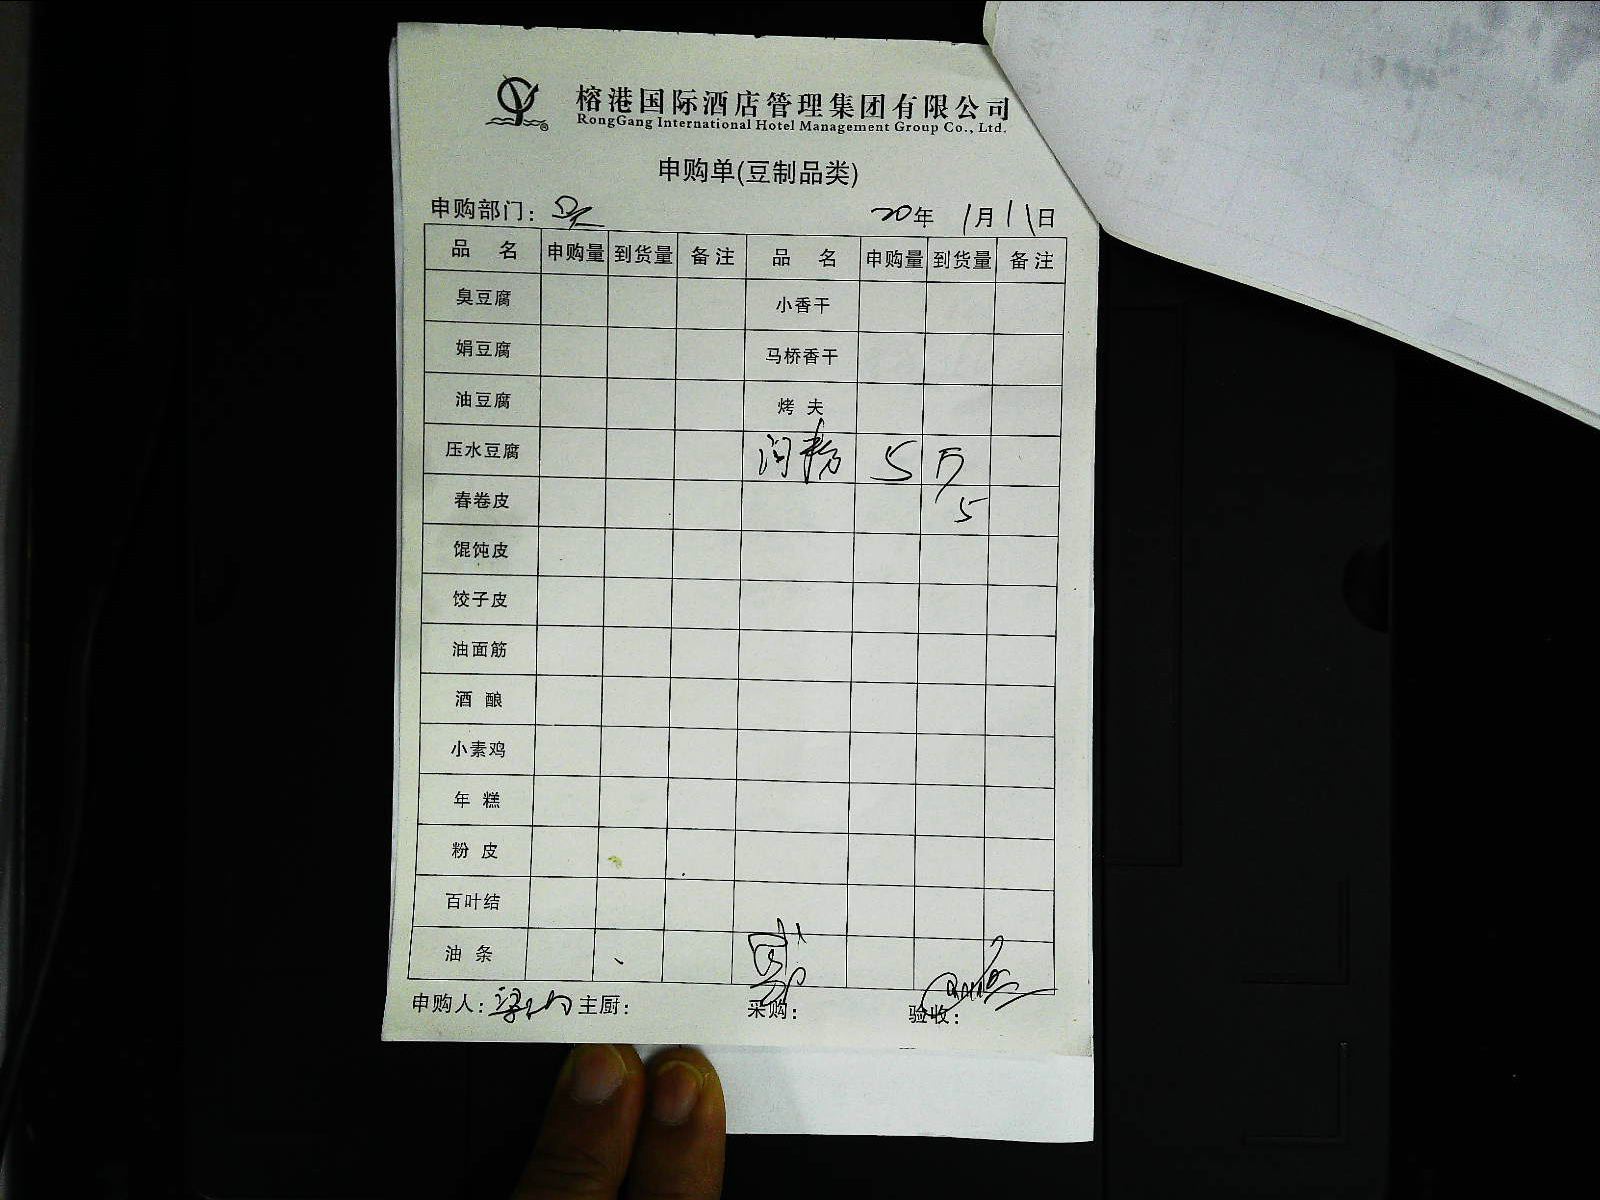 榕港国际酒店管理集团有限公司
RongGang International Hotel Management Group Co., Ltd.
申购单(豆制品类)
申购部门: 20年 1月11日
品 名 申购量 到货量 备注 品 名 申购量 到货量 备注
臭豆腐 小香干
娟豆腐 马桥香干
油豆腐 烤 夫
压水豆腐 5
春卷皮 5
馄饨皮
饺子皮
油面筋
酒 酿
小素鸡
年 糕
粉 皮
百叶结
油 条
申购人: 主厨: 采购: 验收: